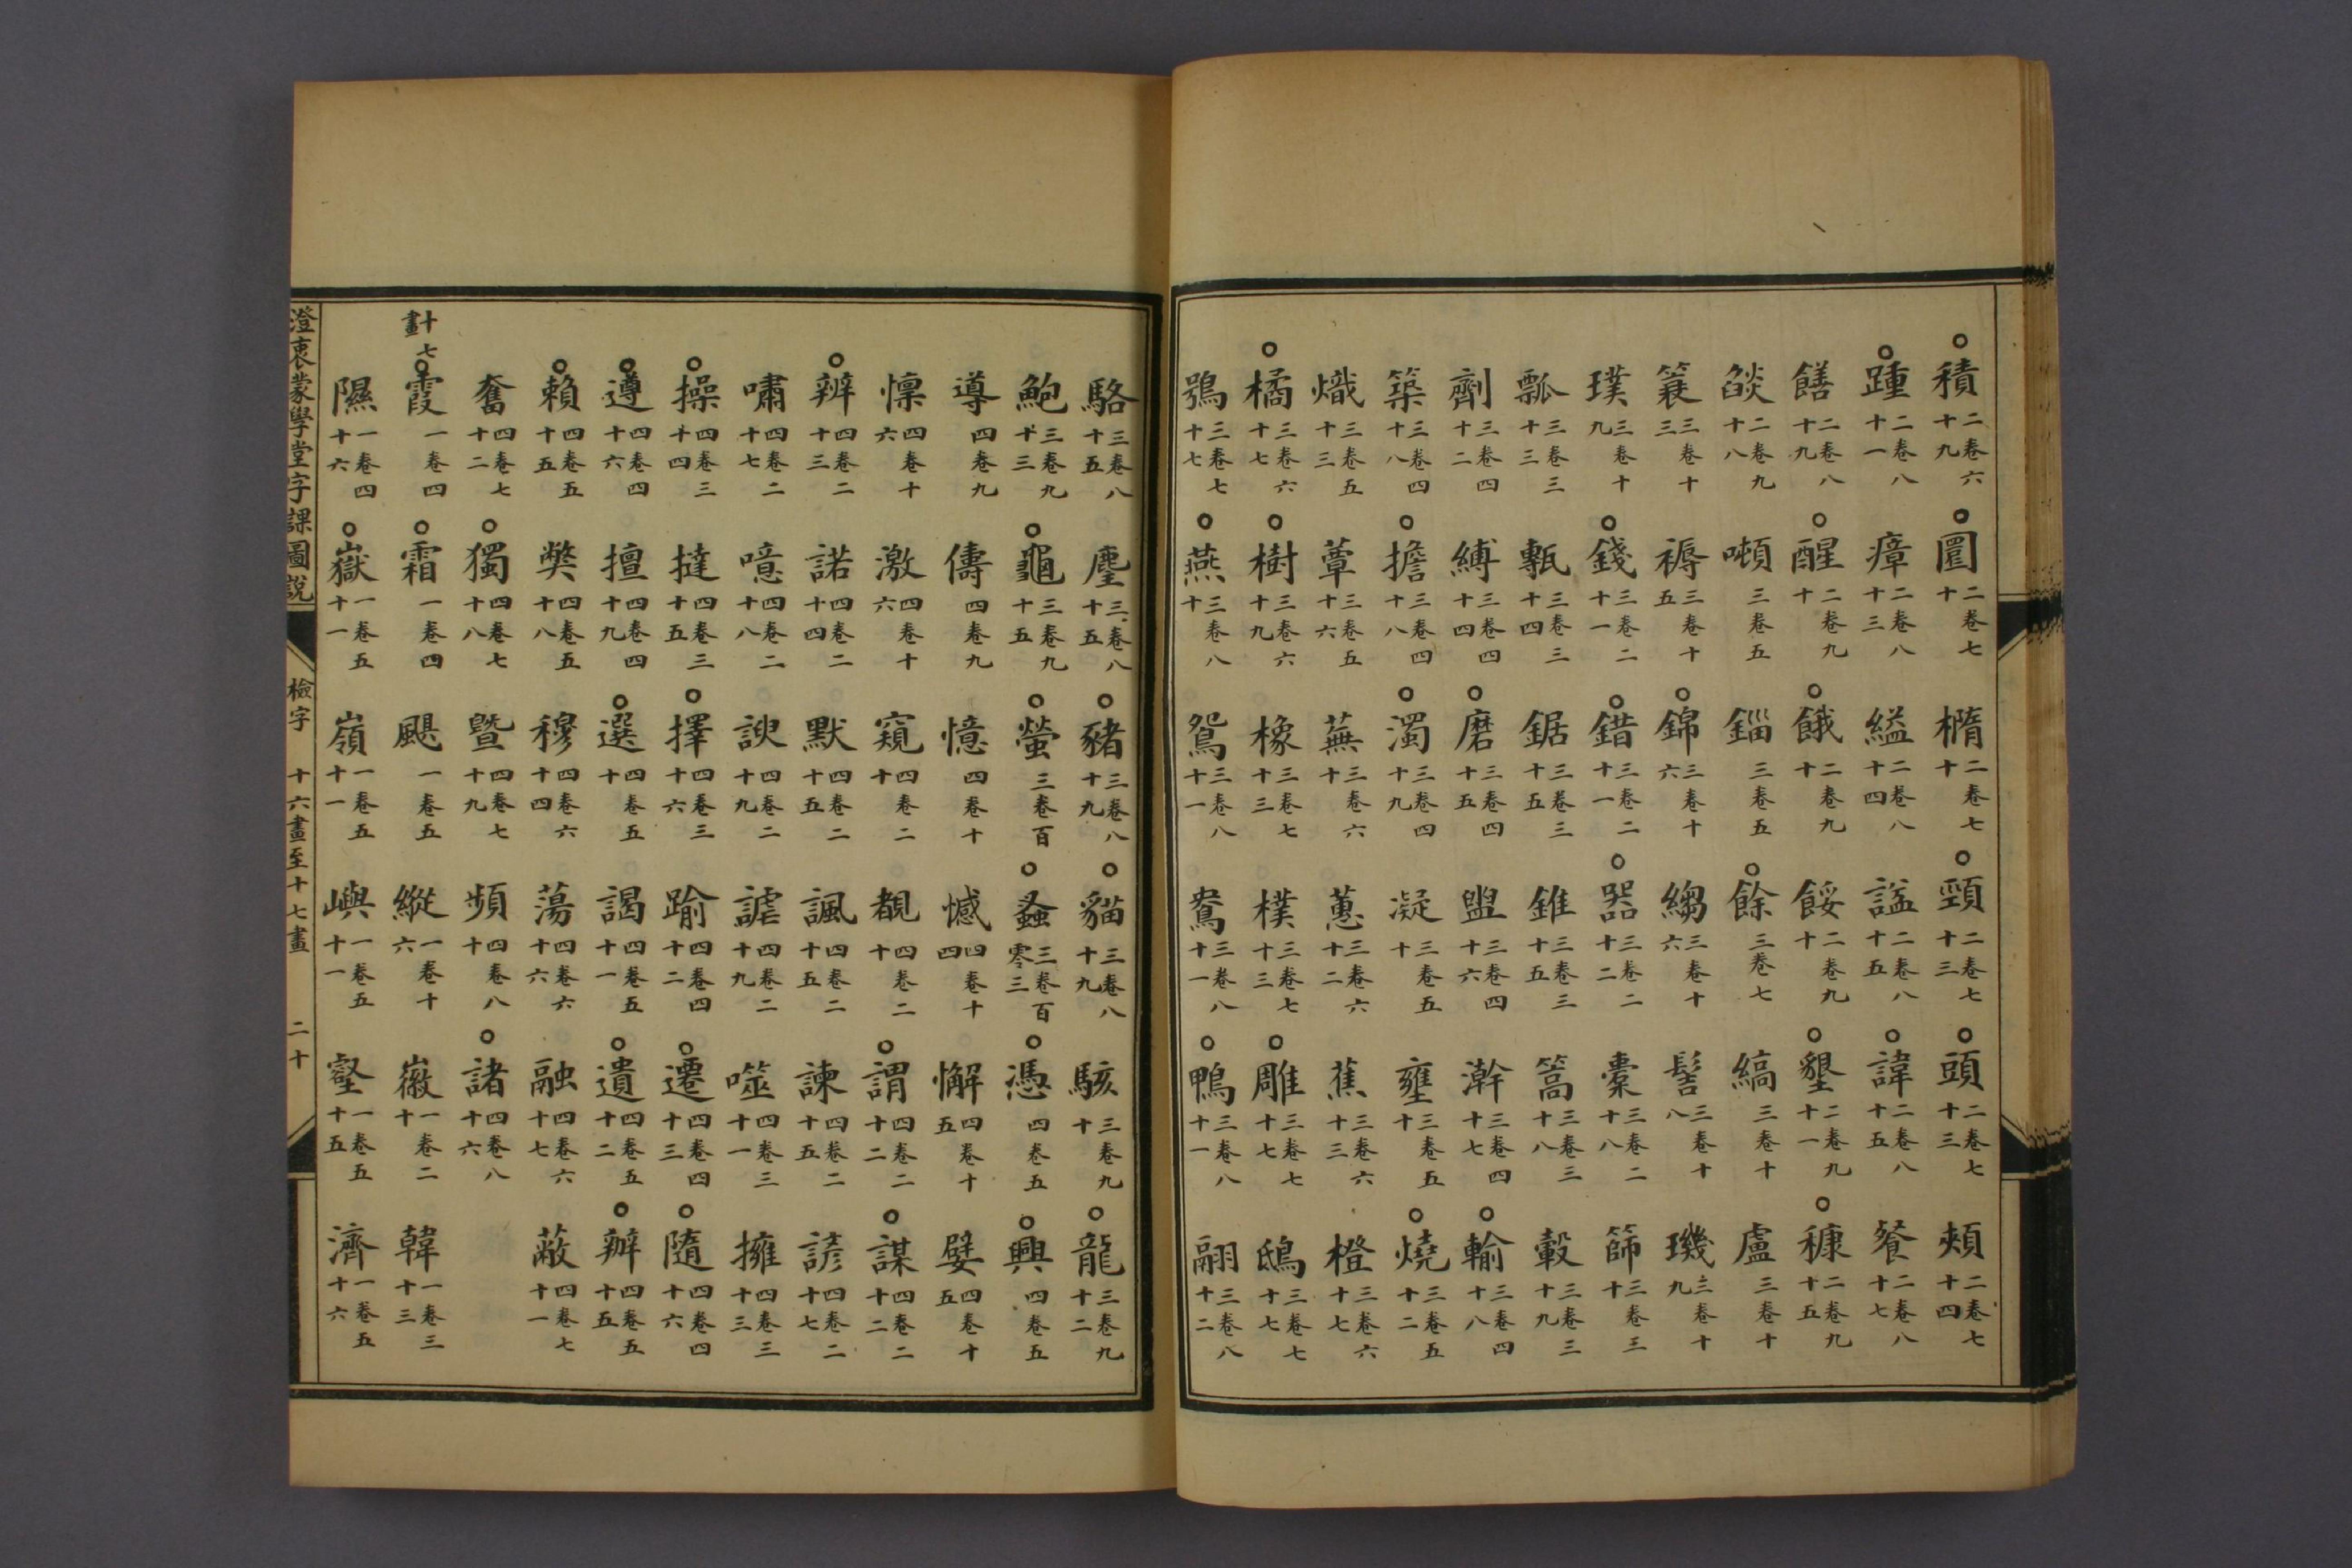 積二卷六十九 圜二卷七十 橢二卷七十 頸二卷七十三 頭二卷七十三 頰二卷七十四
踵二卷八十一 瘴二卷八十三 縊二卷八十四 諡二卷八十五 諱二卷八十五 餐二卷八十七
饍二卷八十九 醒二卷九十 餓二卷九十 餒二卷九十 墾二卷九十一 穅二卷九十五
燄二卷九十八 噸三卷五 錙三卷五 餘三卷七 縞三卷十 盧三卷十
簑三卷十三 褥三卷十五 錦三卷十六 縐三卷十六 髻三卷十八 璣三卷十九
璞三卷十九 錢三卷二十一 錯三卷二十一 器三卷二十二 橐三卷二十八 篩三卷三十
瓢三卷三十三 甎三卷三十四 鋸三卷三十五 錐三卷三十五 篙三卷三十八 轂三卷三十九
劑三卷四十二 縛三卷四十四 磨三卷四十五 盥三卷四十六 澣三卷四十七 輸三卷四十八
築三卷四十八 擔三卷四十八 濁三卷四十九 凝三卷五十 壅三卷五十 燒三卷五十二
熾三卷五十三 蕈三卷五十六 蕪三卷六十 蕙三卷六十二 蕉三卷六十三 橙三卷六十七
橘三卷六十七 樹三卷六十九 橡三卷七十三 樸三卷七十三 雕三卷七十七 鴟三卷七十七
鴞三卷七十七 燕三卷八十 鴛三卷八十一 鴦三卷八十一 鴨三卷八十一 翮三卷八十二
駱三卷八十五 麈三卷八十五 豬三卷八十九 貓三卷八十九 駭三卷九十 龍三卷九十二
鮑三卷九十三 龜三卷九十五 螢三卷百 蟊三卷百零三 憑四卷五 興四卷五
導四卷九 儔四卷九 憶四卷十 憾四卷十四 懈四卷十五 嬖四卷十五
懍四卷十六 激四卷十六 窺四卷二十 覩四卷二十 謂四卷二十二 謀四卷二十二
辨四卷二十三 諾四卷二十四 默四卷二十五 諷四卷二十五 諫四卷二十五 諺四卷二十七
嘯四卷二十七 噫四卷二十八 諛四卷二十九 謔四卷二十九 噬四卷三十一 擁四卷三十三
操四卷三十四 撻四卷三十五 擇四卷三十六 踰四卷四十二 遷四卷四十三 隨四卷四十六
遵四卷四十六 擅四卷四十九 選四卷五十 謁四卷五十一 遺四卷五十二 辦四卷五十五
賴四卷五十五 獘四卷五十八 穆四卷六十四 蕩四卷六十六 融四卷六十七 蔽四卷七十一
奮四卷七十二 獨四卷七十八 暨四卷七十九 頻四卷八十 諸四卷八十六
十七畫
霞一卷四 霜一卷四 颶一卷五 縱一卷十六 一卷二十 韓一卷三十三
隰一卷四十六 嶽一卷五十一 嶺一卷五十一 嶼一卷五十一 壑一卷五十五 濟一卷五十六
澄衷蒙學堂字課圖說 檢字 十六畫至十七畫 二十